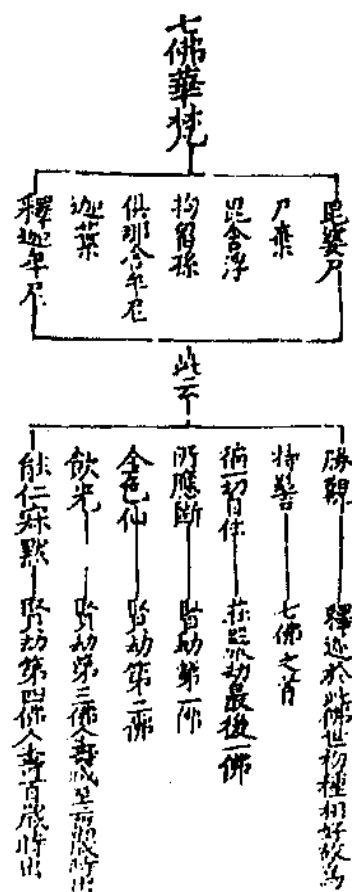 七佛華梵
毘婆尸
尸棄
毘舍浮
拘留孫
俱那含牟尼
迦葉
釋迦牟尼
此云
勝觀 釋迦於此佛世初種相好故為
持髻 七佛之首
徧一切自在 莊嚴劫最後一佛
所應斷 賢劫第一佛
金色仙 賢劫第二佛
飲光 賢劫第三佛人壽減至二萬歲時出
能仁寂默 賢劫第四佛人壽百歲時出